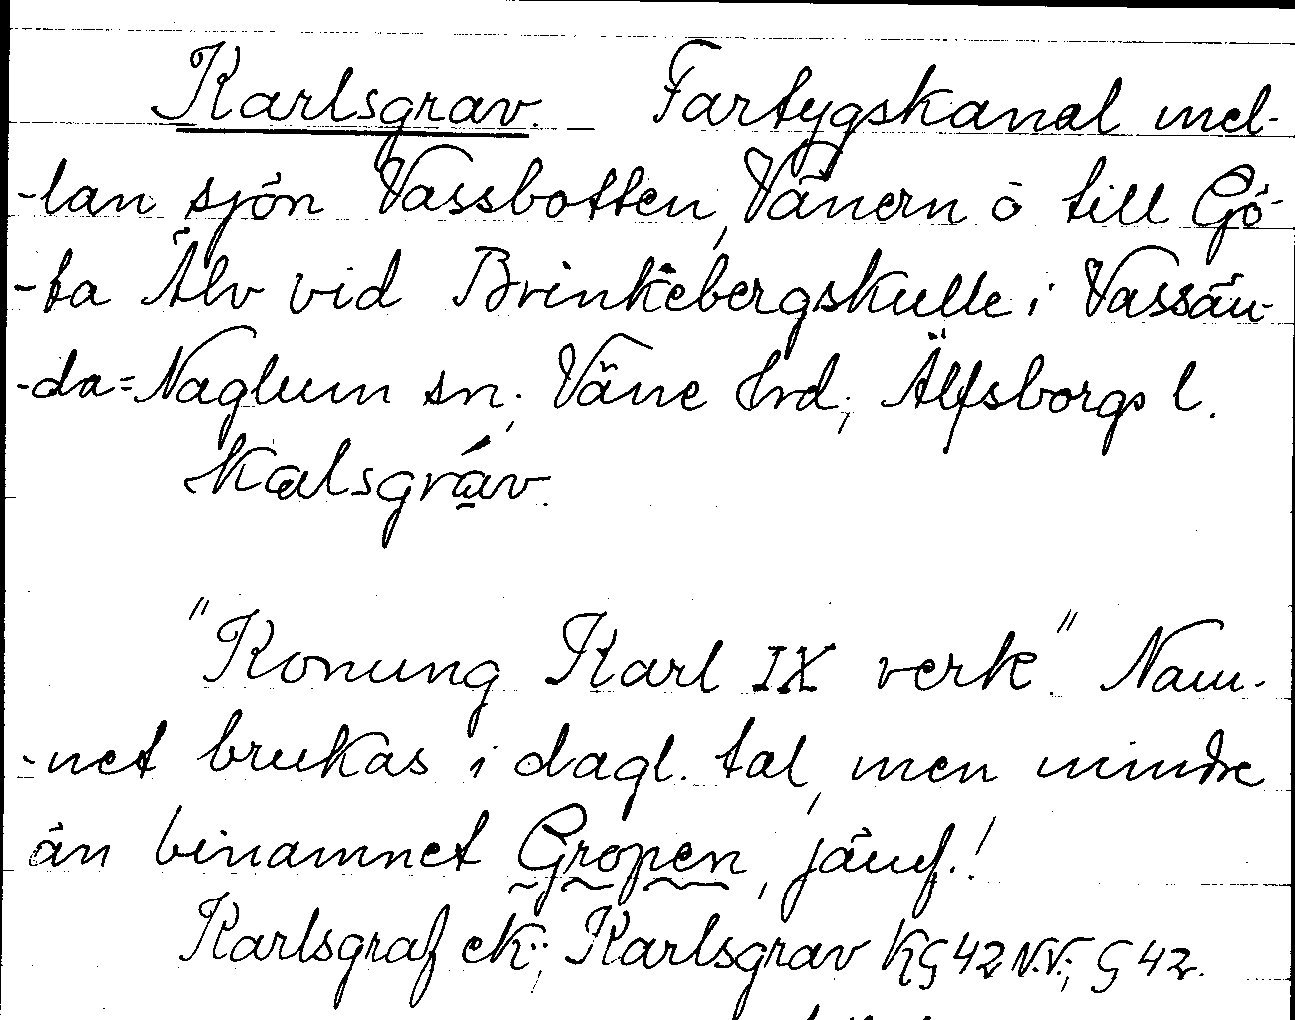 Karlsgrav. Fartygskanal mel-
-lan sjön Vassbotten, Vänern ö till Gö-
-ta Älv vid Brinkebergskulle i Vassän-
-da=Naglum sn. Väne hrd; Älfsborgs l.
kalsgráv.
"Konung Karl IX verk". Nam-
-net brukas i dagl. tal, men mindre
än binamnet Gropen, jämf.!
Karlsgraf ek.; Karlsgrav KG 42 N.V.; G 42.